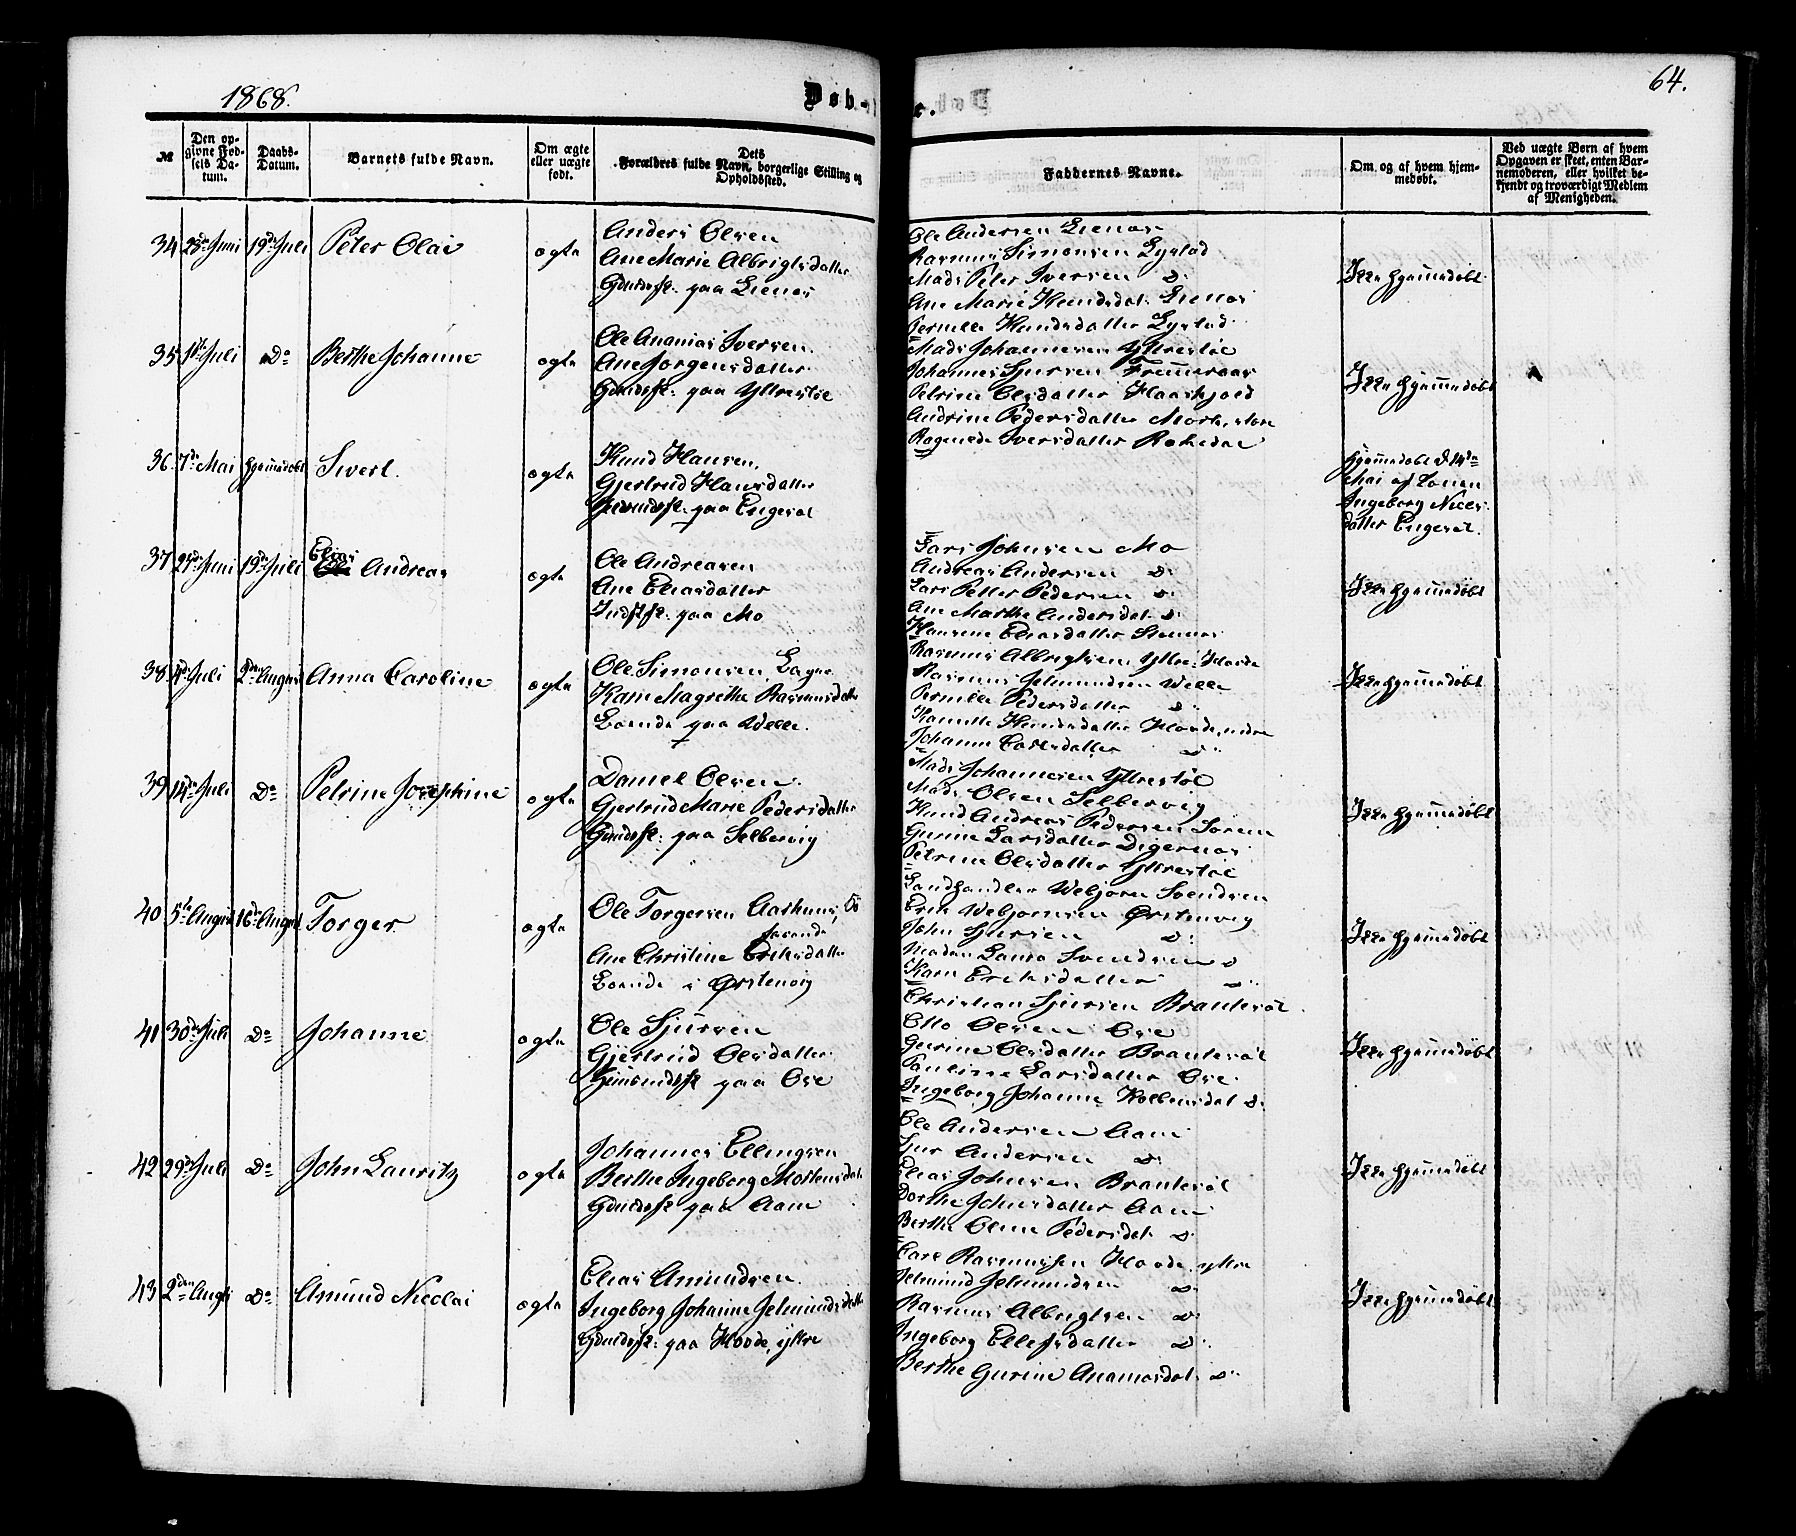 1868.
Døb-
te.
64.
№
Den opgivne Fødsels Datum.
Daabs-Datum.
Barnets fulde Navn.
Om ægte eller uægte født.
Dets Forældres fulde Navn, borgerlige Stilling og Opholdssted.
Faddernes Navne.
Om og af hvem hjemmedøbt.
Ved uægte Børn af hvem Opgaven er skeet, enten Barnemoderen, eller hvilket bekjendt og troværdigt Medlem af Menigheden.
34 28de Juni 19de Juli Peter Olai ægte
Anders Olsen
Ane Marie Albrigtsdatter
Gdmdsf. paa Lienæs
Ole Andersen Lienæs
Rasmus Simonsen Lystad
Mads Peter Iversen do
Ane Marie Knudsdat. Lienæs
Pernille Knudsdatter Lystad
Ikke hjemmedøbt
35 1ste Juli Do Berthe Johanne ægte
Ole Ananias Iversen
Ane Jørgensdatter
Gdmdsf. paa Yttrestøl
Mads Johannesen Yttrestøl
Johannes Sjursen
Petrine Olsdatter Haaskjold
Andrine Pedersdatter
Ragnede Iversdatter
Ikke hjemmedøbt
36 7de Mai hjemmedøbt Sivert ægte
Knud Hansen
Gjertrud Hansdatter
Huusmdsf. paa Engeset
hjemmedøbt d 14de
Mai af Konen
Ingeborg Niels-
datter Engeset
37 21de Juni 19de Juli Elias Andreas ægte
Ole Andreasen
Ane Eliasdatter
Indstf. paa Mo
Lars Johnsen Mo
Andreas Andersen do
Lars Petter Pedersen do
Ane Marthe Andersdat. do
Hansine Eliasdatter
Ikke hjemmedøbt
38 4de Juli 2den August Anna Caroline ægte
Ole Simonsen
Karn Magrethe Rasmusdatter
Boende paa Welle
Rasmus Albrigtsen Yttre-Hovde
Rasmus Jelmundsen Welle
Pernille Pedersdatter do
Knudsdatter Hovde, indre
Johanne do
Ikke hjemmedøbt
39 14de Juli Do Petrine Josephine ægte
Daniel Olsen
Gjertrud Marie Pedersdatter
Gdmdsf. paa Selbervig
Mads Johannesen Yttrestøl
Mads Olsen Selbervig
Knud Andreas Pedersen
Gurine Larsdatter Digernæs
Petrine Olsdatter Yttrestøl
Ikke hjemmedøbt
40 5te August 16de August Torger ægte
Ole Torgersen
Ane Christine Eriksdatter
Boende i Ørstenvig
Landhandler Webjørn Svendsen
Erik Webjørnsen Ørstenvig
John Sjursen do
Madam Svendsen do
Karn Eriksdatter do
Ikke hjemmedøbt
41 30de Juli Do Johanne ægte
Ole Sjursen
Gjertrud Olsdatter
Huusmdsf. paa Ose
Christian Sjursen
Otto Olsen Ose
Gurine Olsdatter
Pauline Larsdatter Ose
Ingeborg Johanne do
Ikke hjemmedøbt
42 29de Juli Do John Lauritz ægte
Johannes Ellingsen
Berthe Ingeborg Mortensdat.
Gdmdsf. paa Aam
Ole Andersen Aam
Sjur Andersen do
Elias Johnsen
Dorthe Johnsdatter Aam
Berthe Oline Pedersdat. do
Ikke hjemmedøbt
43 2den August Do Amund Nicolai ægte
Elias Amundsen
Ingeborg Johanne Jelmundsdatter
Gdmdsf. paa Hovde, yttre
Carl Rasmussen Hovde, yttre
Jelmund Jelmundsen do
Rasmus Albrigtsen do
Ingeborg Ellefsdatter do
Berthe Gurine do
Ikke hjemmedøbt